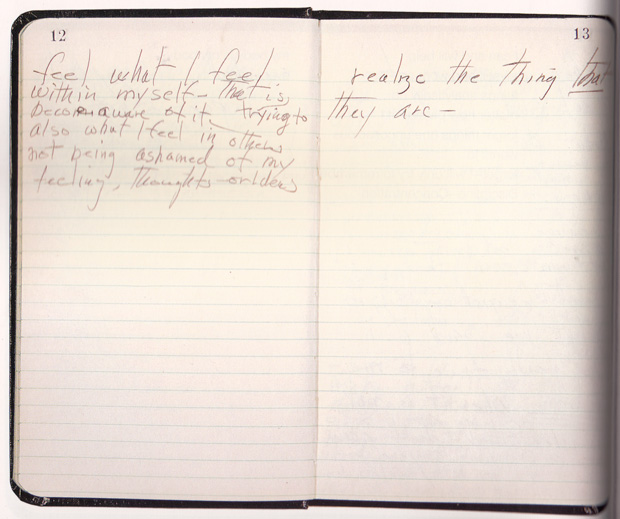 12
feel what I feel
within myself - that is
become aware of it trying to
also what I feel in others
not being ashamed of my
feeling, thoughts - or ideas
13
realize the thing that
they are -